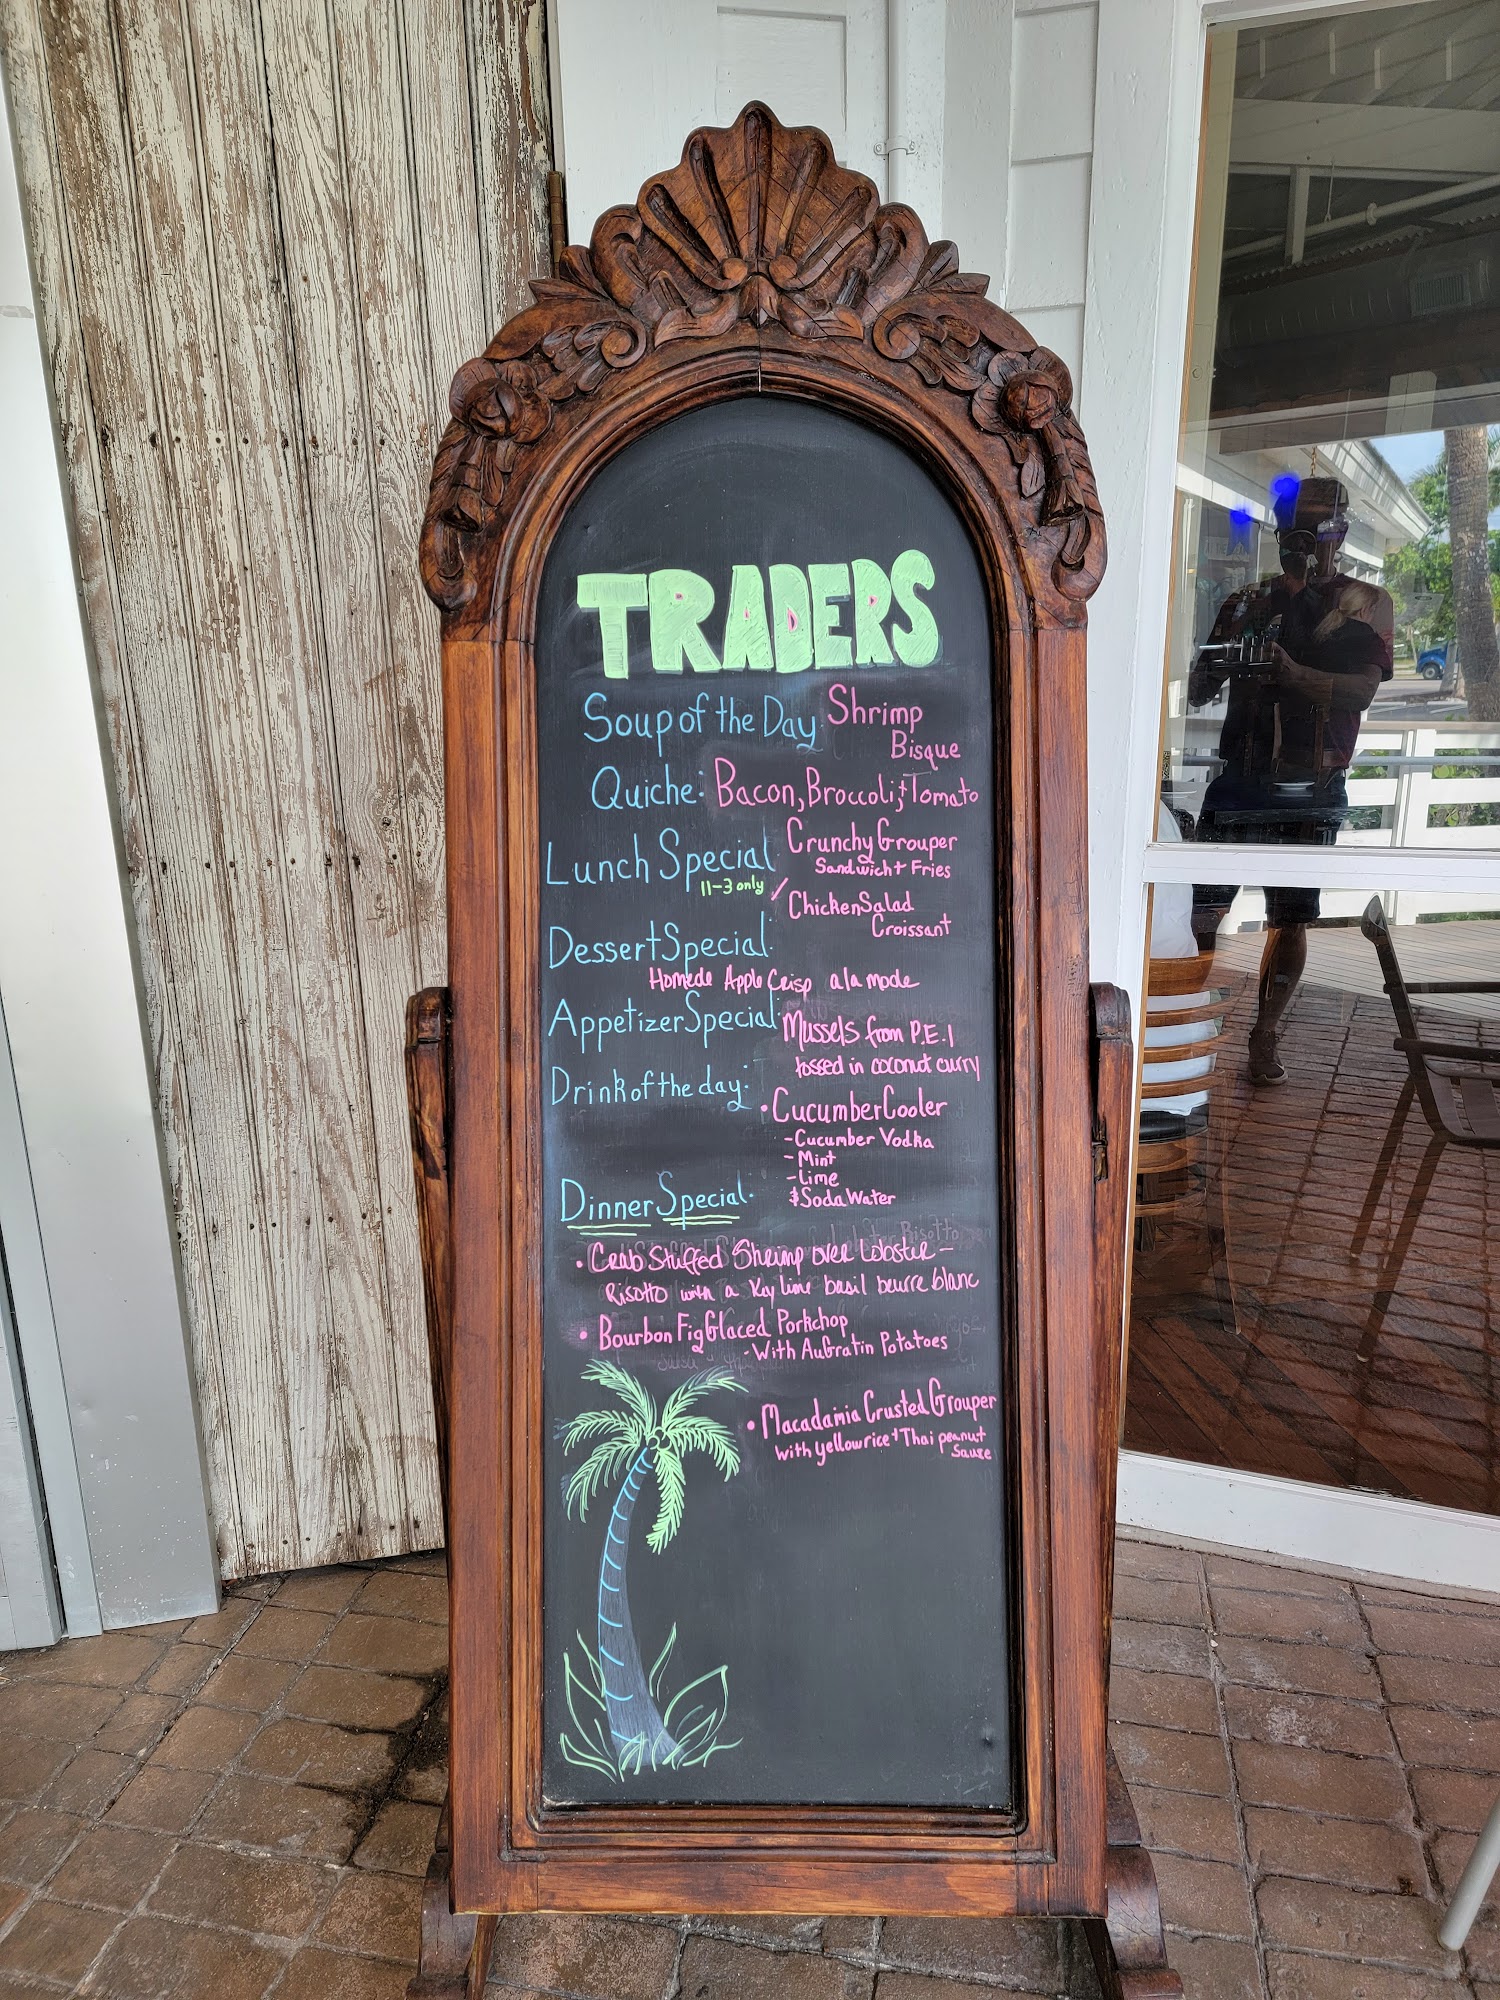 TRADERS
Soup of the Day: Shrimp
Bisque
Quiche: Bacon, Broccoli, + Tomato
Lunch Special: Crunchy Grouper
Sandwich + Fries
11-3 only
Chicken Salad
Croissant
Dessert Special:
Homede Apple Crisp a la mode
Appetizer Special: Mussels from P.E.I
tossed in coconut curry
Drink of the day:
• Cucumber Cooler
- Cucumber Vodka
- Mint
- Lime
& Soda Water
Dinner Special:
• Crab Stuffed Shrimp over Lobster -
Risotto with a Key lime basil beurre blanc
• Bourbon Fig Glaced Porkchop
- With AuGratin Potatoes
• Macadamia Crusted Grouper
with yellow rice + Thai peanut
Sause